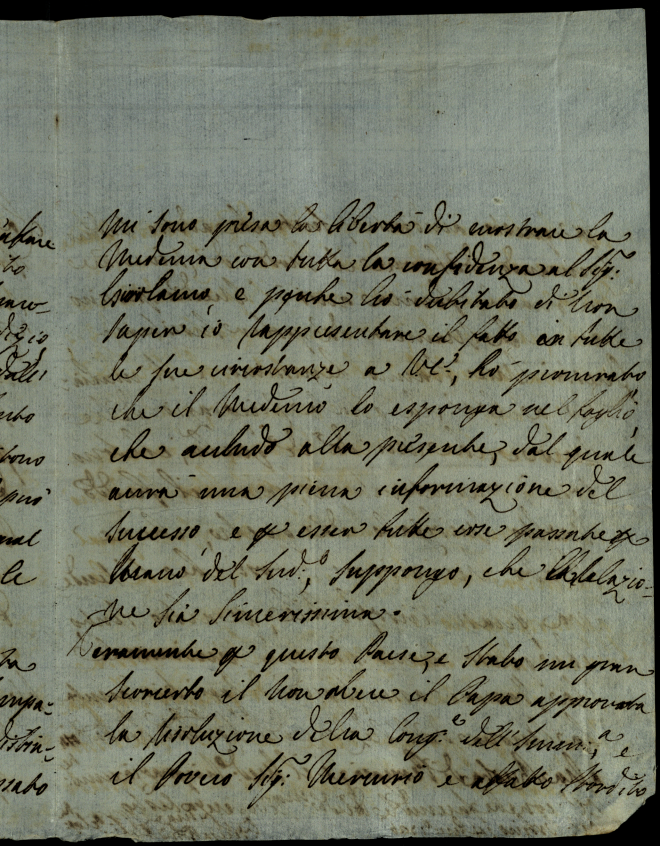 Mi sono presa la libertà di mostrare la
Medema con tutta la confidenza al Sig:
Girolamo, e perche hò dubitato di non
saper io rappresentare il fatto in tutte
le sue circostanze a VS:, hò procurato
che il Medemo lo esponga nel foglio,
che accludo alla presente, dal quale
aurà una piena informazione del
successo, e p esser tutte cose passate p
Mano del Sud:º, suppongo, che la Relazio-
ne sia sincerissima.
Veramente p questo Paese, e stato un gran
Sconcerto il non avere il Papa approvata
la risoluzione della Cong:e dell'Immu:a, e
il Povero Sig: Mercurio e affatto stordito